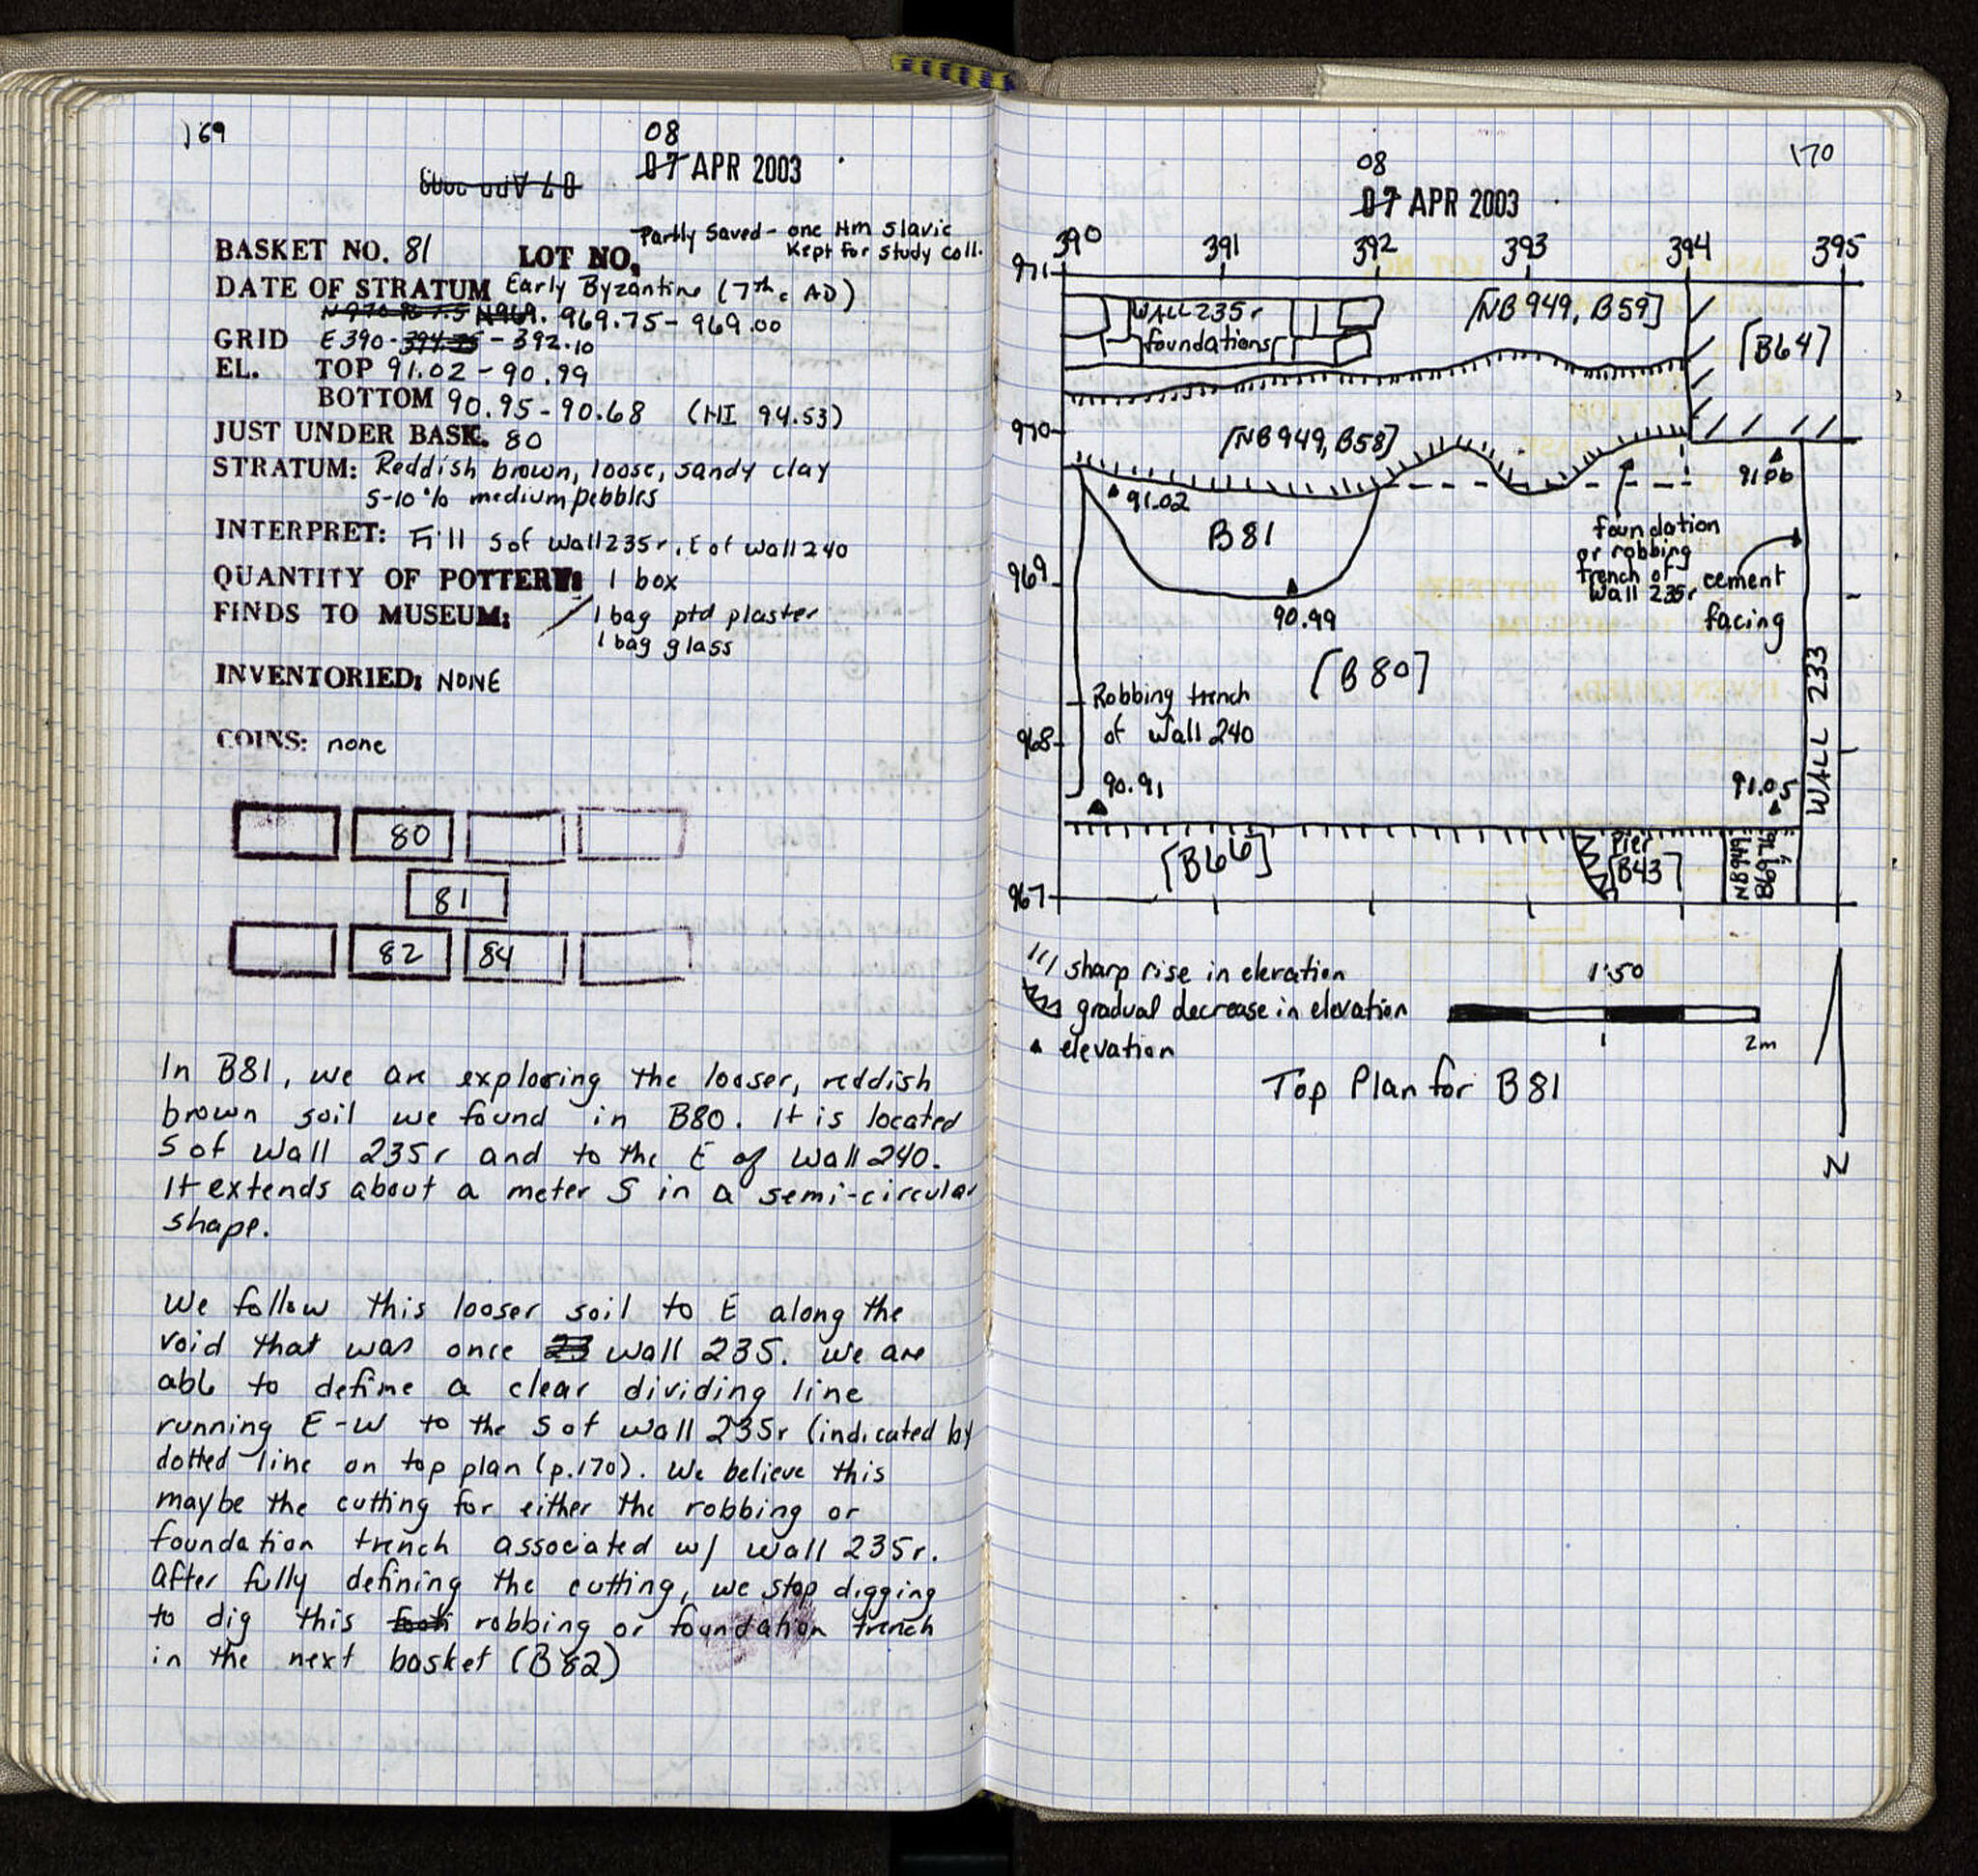 169
08
07 APR 2003
07 APR 2003
Partly Saved - one Hm Slavic
Kept for study coll.
BASKET NO. 81 LOT NO.
DATE OF STRATUM Early Byzantine (7th c AD)
N969. 969.75 - 969.00
GRID E390 - 394.25 - 392.10
EL. TOP 91.02 - 90.99
BOTTOM 90.95 - 90.68 (HI 94.53)
JUST UNDER BASK. 80
STRATUM: Reddish brown, loose, sandy clay
5-10% medium pebbles
INTERPRET: Fill S of Wall 235r, E of Wall 240
QUANTITY OF POTTERY: 1 box
FINDS TO MUSEUM: 1 bag ptd plaster
1 bag glass
INVENTORIED: NONE
COINS: none
80
81
82 84
In B81, we are exploring the looser, reddish
brown soil we found in B80. It is located
S of Wall 235r and to the E of Wall 240.
It extends about a meter S in a semi-circular
shape.
We follow this looser soil to E along the
void that was once 23 Wall 235. We are
able to define a clear dividing line
running E-W to the S of Wall 235r (indicated by
dotted line on top plan (p.170). We believe this
maybe the cutting for either the robbing or
foundation trench associated w/ Wall 235r.
After fully defining the cutting, we stop digging
to dig this robbing or foundation trench
in the next basket (B82)
170
08
07 APR 2003
390 391 392 393 394 395
971
WALL 235r
foundations
[NB 949, B59]
[B64]
970
[NB 949, B58]
91.06
91.02
B81
foundation
or robbing
trench of
Wall 235r
cement
facing
969
90.99
[B80]
Robbing trench
of Wall 240
968
WALL 233
90.91
91.05
[B66]
Pier
[B43]
NB949
B69
967
sharp rise in elevation
gradual decrease in elevation
elevation
1:50
1 2m
Top Plan for B81
N